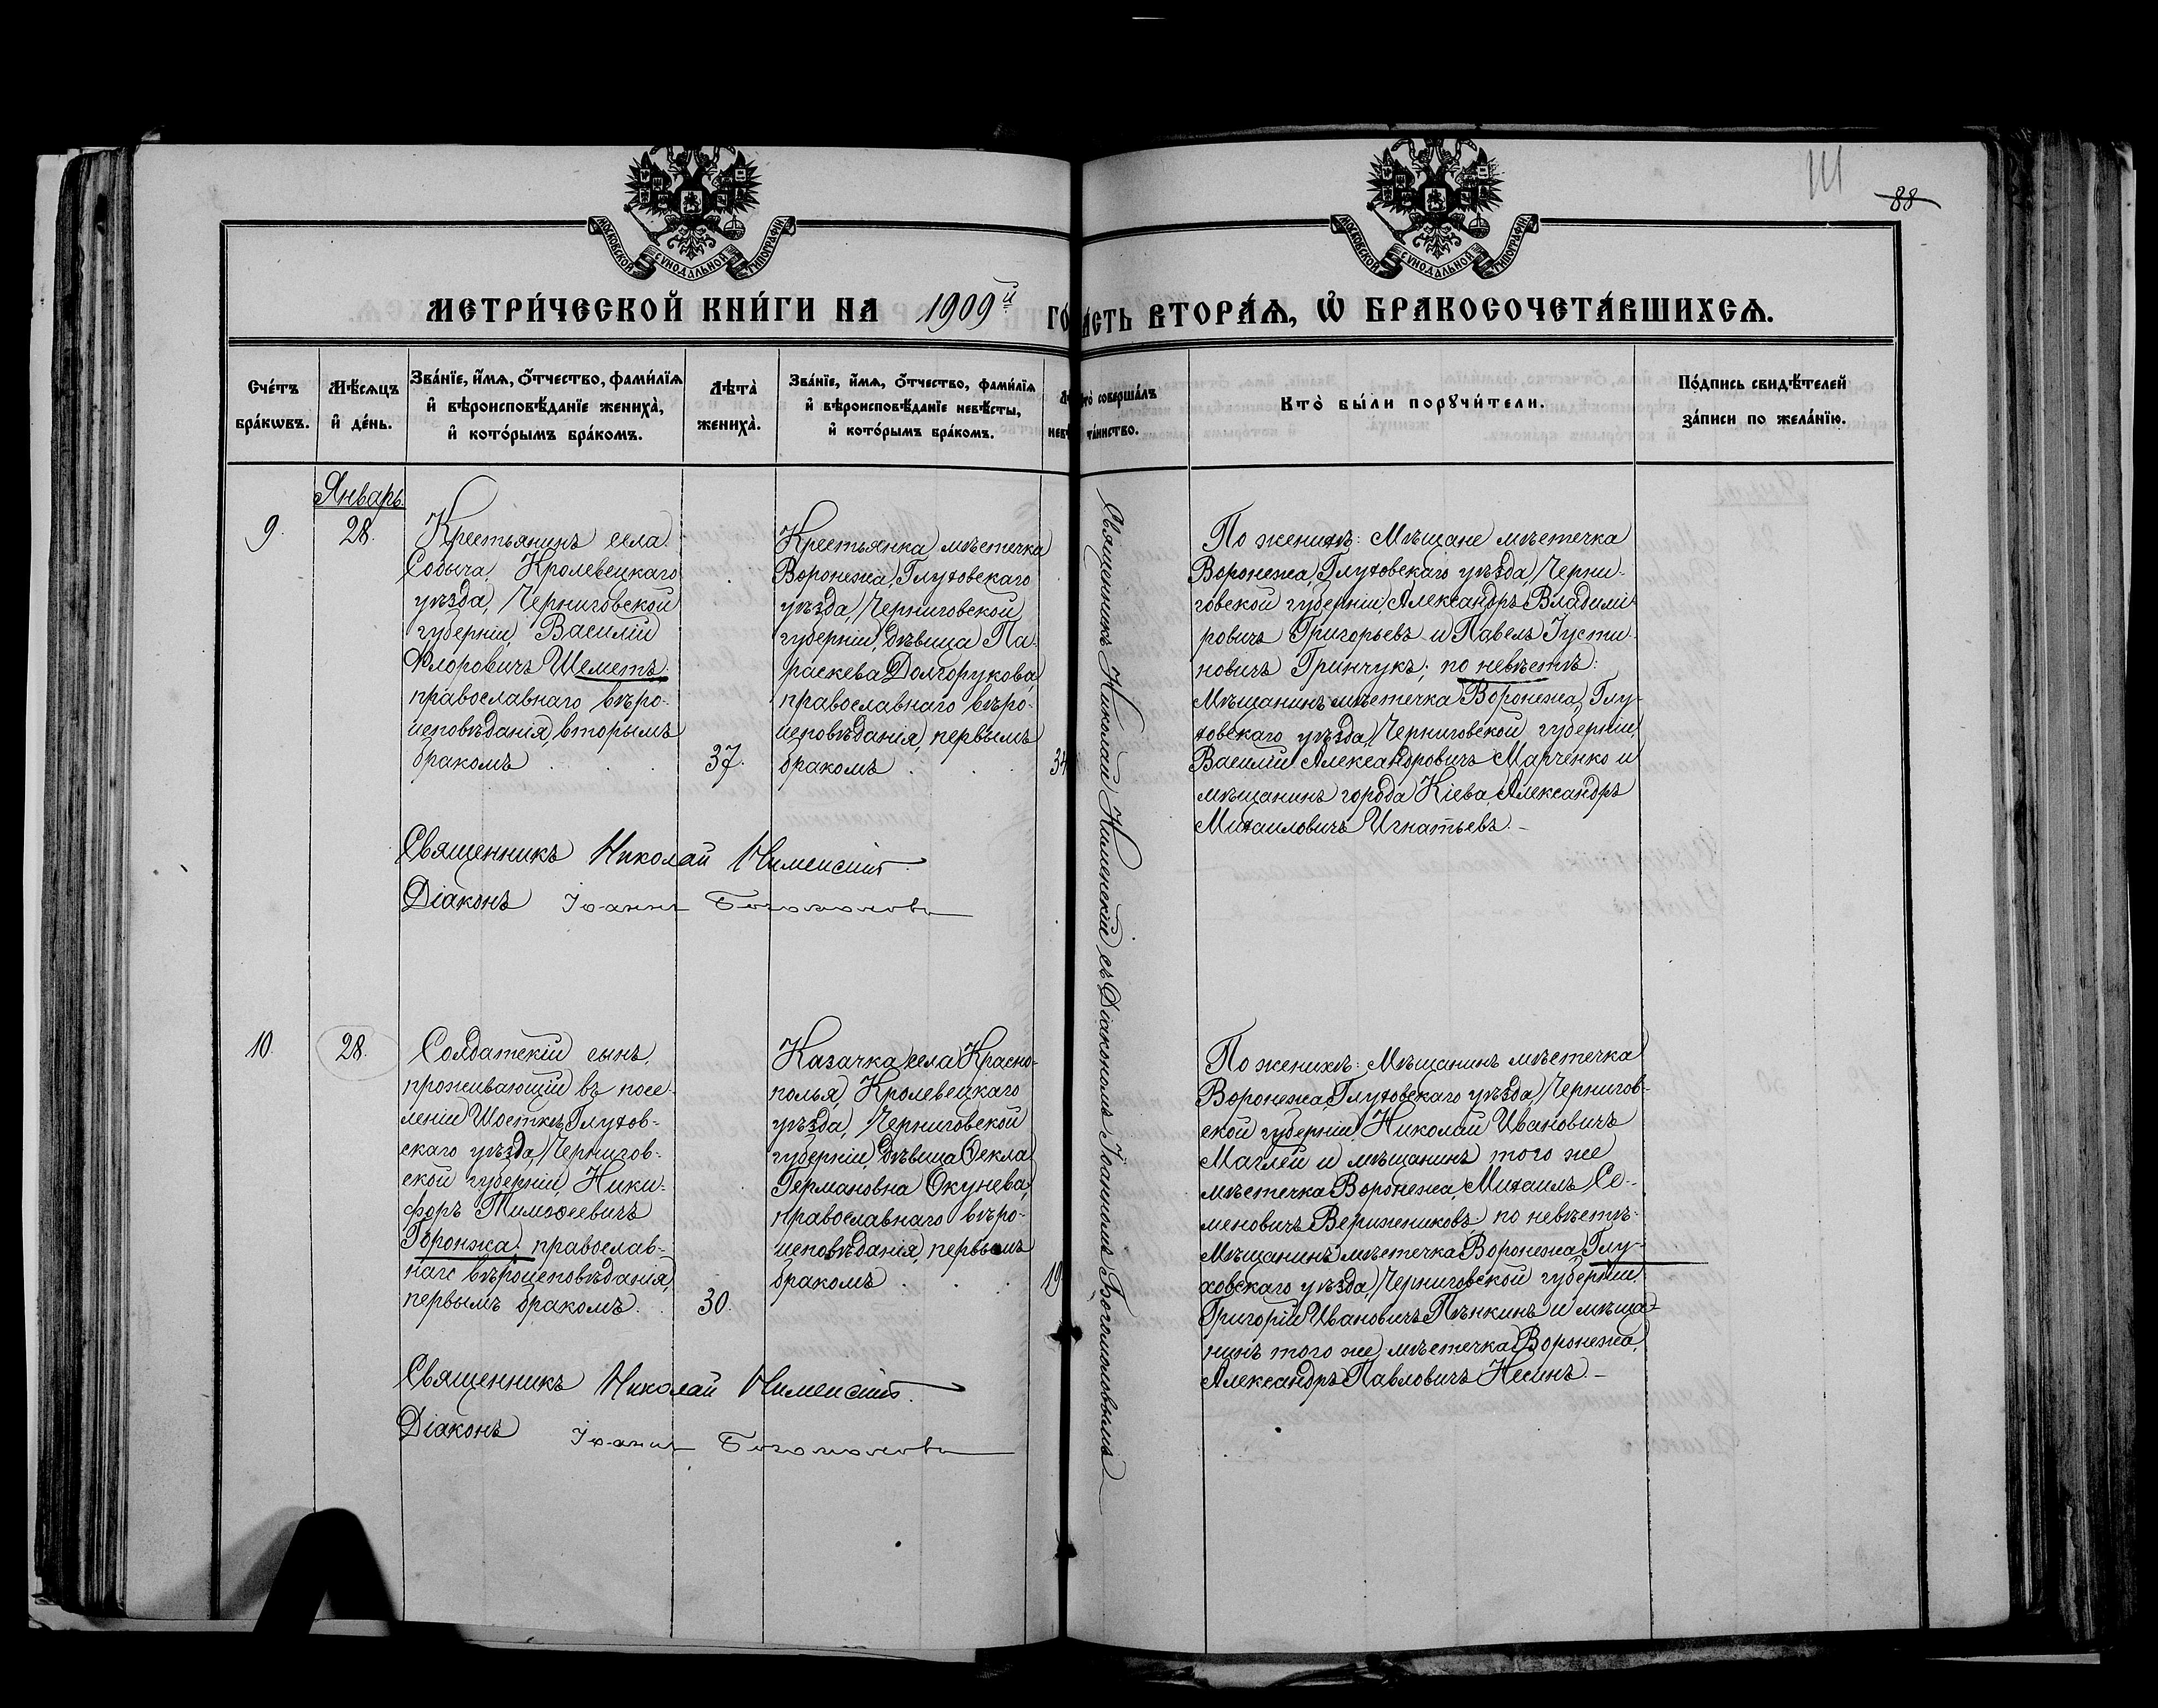 МОСКОВСКОЙ СѴНОДАЛЬНОЙ ТИПОГРАФІИ
МОСКОВСКОЙ СѴНОДАЛЬНОЙ ТИПОГРАФІИ
88
МЕТРИ́ЧЕСКОЙ КНИ́ГИ НА 1909й ГО
А́СТЬ ВТОРА́Ѧ, Ѡ҆ БРАКОСОЧЕТА́ВШИХСѦ.
Сче́тъ бра́кѡвъ.
Мѣ́сѧцъ и҆ де́нь.
Зва́нїе, и҆́мѧ, ѻ҆́тчество, фами́лїѧ и҆ вѣроисповѣ́данїе жениха̀, и҆ кото́рымъ бра́комъ.
Лѣта̀ жениха̀.
Зва́нїе, и҆́мѧ, ѻ҆́тчество, фами́лїѧ и҆ вѣроисповѣ́данїе невѣ́сты, и҆ кото́рымъ бра́комъ.
Кто̀ соверша́лъ та́инство.
Кто̀ бы́ли порꙋчи́тели.
По́дпись свидѣ́телей за́писи по жела́нїю.
Январь.
9.
28.
Крестьянинъ села
Собыча, Кролевецкаго
уѣзда, Черниговской
губерніи, Василій
Флоровичъ Шеметъ,
православнаго вѣро-
исповѣданія, вторымъ
бракомъ . . .
37.
Крестьянка мѣстечка
Воронежа, Глуховскаго
уѣзда, Черниговской
губерніи, дѣвица Па-
раскева Долгорукова,
православнаго вѣро-
исповѣданія, первымъ
бракомъ . . .
34
Священникъ Николай Нименскій съ Діакономъ Іоанномъ Богомоловымъ
По женихѣ: Мѣщане мѣстечка
Воронежа, Глуховскаго уѣзда, Черни-
говской губерніи, Александръ Владимі-
ровичъ Григорьевъ и Павелъ Іусти-
новичъ Гринчукъ; по невѣстѣ:
Мѣщанинъ мѣстечка Воронежа, Глу-
ховскаго уѣзда, Черниговской губерніи,
Василій Александровичъ Марченко и
мѣщанинъ города Кіева, Александръ
Михаиловичъ Игнатьевъ.–
Священникъ Николай Нименскій
Діаконъ Іоаннъ Богомоловъ
10.
28.
Солдатскій сынъ,
проживающій въ посе-
леніи Шосткѣ, Глухов-
скаго уѣзда, Чернигов-
ской губерніи, Ники-
форъ Тимоѳеевичъ
Горонжа, православ-
наго вѣроисповѣданія,
первымъ бракомъ. .
30.
Казачка села Красно-
полья, Кролевецкаго
уѣзда, Черниговской
губерніи, дѣвица Ѳекла
Германовна Окунева,
православнаго вѣро-
исповѣданія, первымъ
бракомъ . . .
19
По женихѣ: Мѣщанинъ мѣстечка
Воронежа, Глуховскаго уѣзда, Чернигов-
ской губерніи, Николай Ивановичъ
Маглей и мѣщанинъ того же
мѣстечка Воронежа, Михаилъ Се-
меновичъ Верижениковъ, по невѣстѣ-
Мѣщанинъ мѣстечка Воронежа, Глу-
ховскаго уѣзда, Черниговской губерніи,
Григорій Ивановичъ Пѣнкинъ и мѣща-
нинъ того же мѣстечка Воронежа,
Александръ Павловичъ Несинъ.–
Священникъ Николай Нименскій.
Діаконъ Іоаннъ Богомоловъ